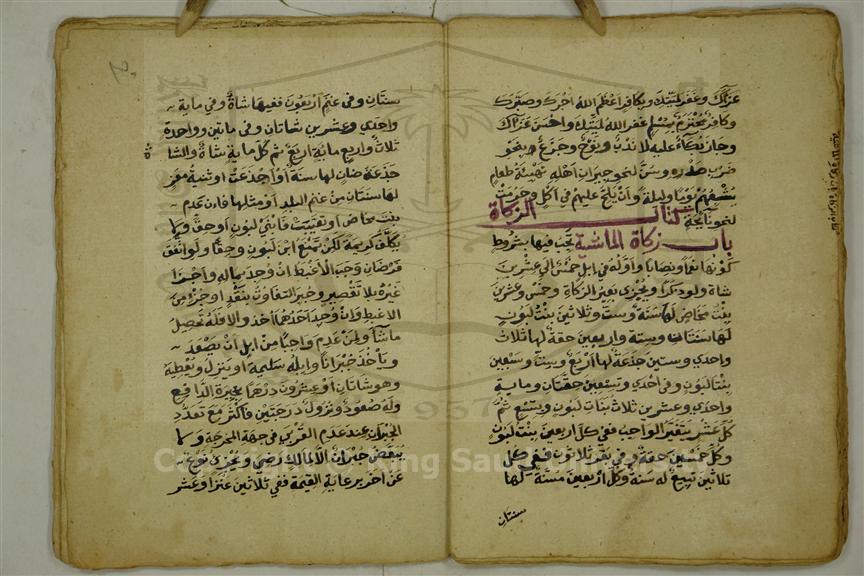 عزاك وغفر لميتك وبكافر اعظم الله اجرك وصبرك
وكافر بمحترم مسلم غفر الله لميتك واحسن عزاك
وجاز بكاء عليه لا ندب ونوح وجزع بنحو
ضرب صدر وسن لنحو جيران اهله تهيئة طعام
يشبعهم يوما وليلة وان يلح عليهم في اكل وحرمت
لنحو نائحة كتاب الزكاة
باب زكاة الماشية تجب فيها بشروط
كونها نعما ونصابا واوله في ابل خمس الى عشرين
شاة ولو ذكرا ويجزي بعير الزكاة وخمس وعشرين
بنت مخاض لها سنة وست وثلاثين بنت لبون
لها سنتان وستة واربعين حقة لها ثلاث
واحدي وستين جذعة لها اربع وست وسبعين
بنتا لبون وفي احدي وتسعين حقتان وماية
واحدي وعشرين ثلاث بنات لبون وبتسع ثم
كل عشر يتغير الواجب ففي كل اربعين بنت لبون
وكل خمسين حقة وفي بقر ثلاثون ففي كل
ثلاثين تبيع له سنة وكل اربعين مسنة لها
سنتان
سنتان وفي غنم اربعون ففيها شاة وفي ماية
واحدي وعشرين شاتان وفي ماتين وواحدة
ثلاث واربع ماية اربع ثم كل ماية شاة والشاة
جذعة ضان لها سنة او اجذعت او ثنية معز
لها سنتان من غنم البلد او مثلها فان عدم
بنت مخاض او تعيبت فابن لبون او حق ولا
يكلف كريمة لكن تمنع ابن لبون وحقا ولو اتفق
فرضان وجب الاغبط ان وجد بماله واجزا
غيره بلا تقصير وجبر التفاوت بنقد او جزء من
الاغبط وان وجد احدهما اخذ والا فله تحصيل
ما شا ولمن عدم واجبا من ابل ان يصعد
وياخذ جبرانا وابله سليمة او ينزل ويعطيه
وهو شاتان او عشرون درهما بخيرة الدافع
وله صعود ونزول درجتين فاكثر مع تعدد
الجبران عند عدم القربي في جهة المخرجة ولا
يبعض جبران الا لمالك رضي ويجزي نوع
عن اخر برعاية القيمة ففي ثلاثين عنزا وعشر
Copyright © King Saud University
1957